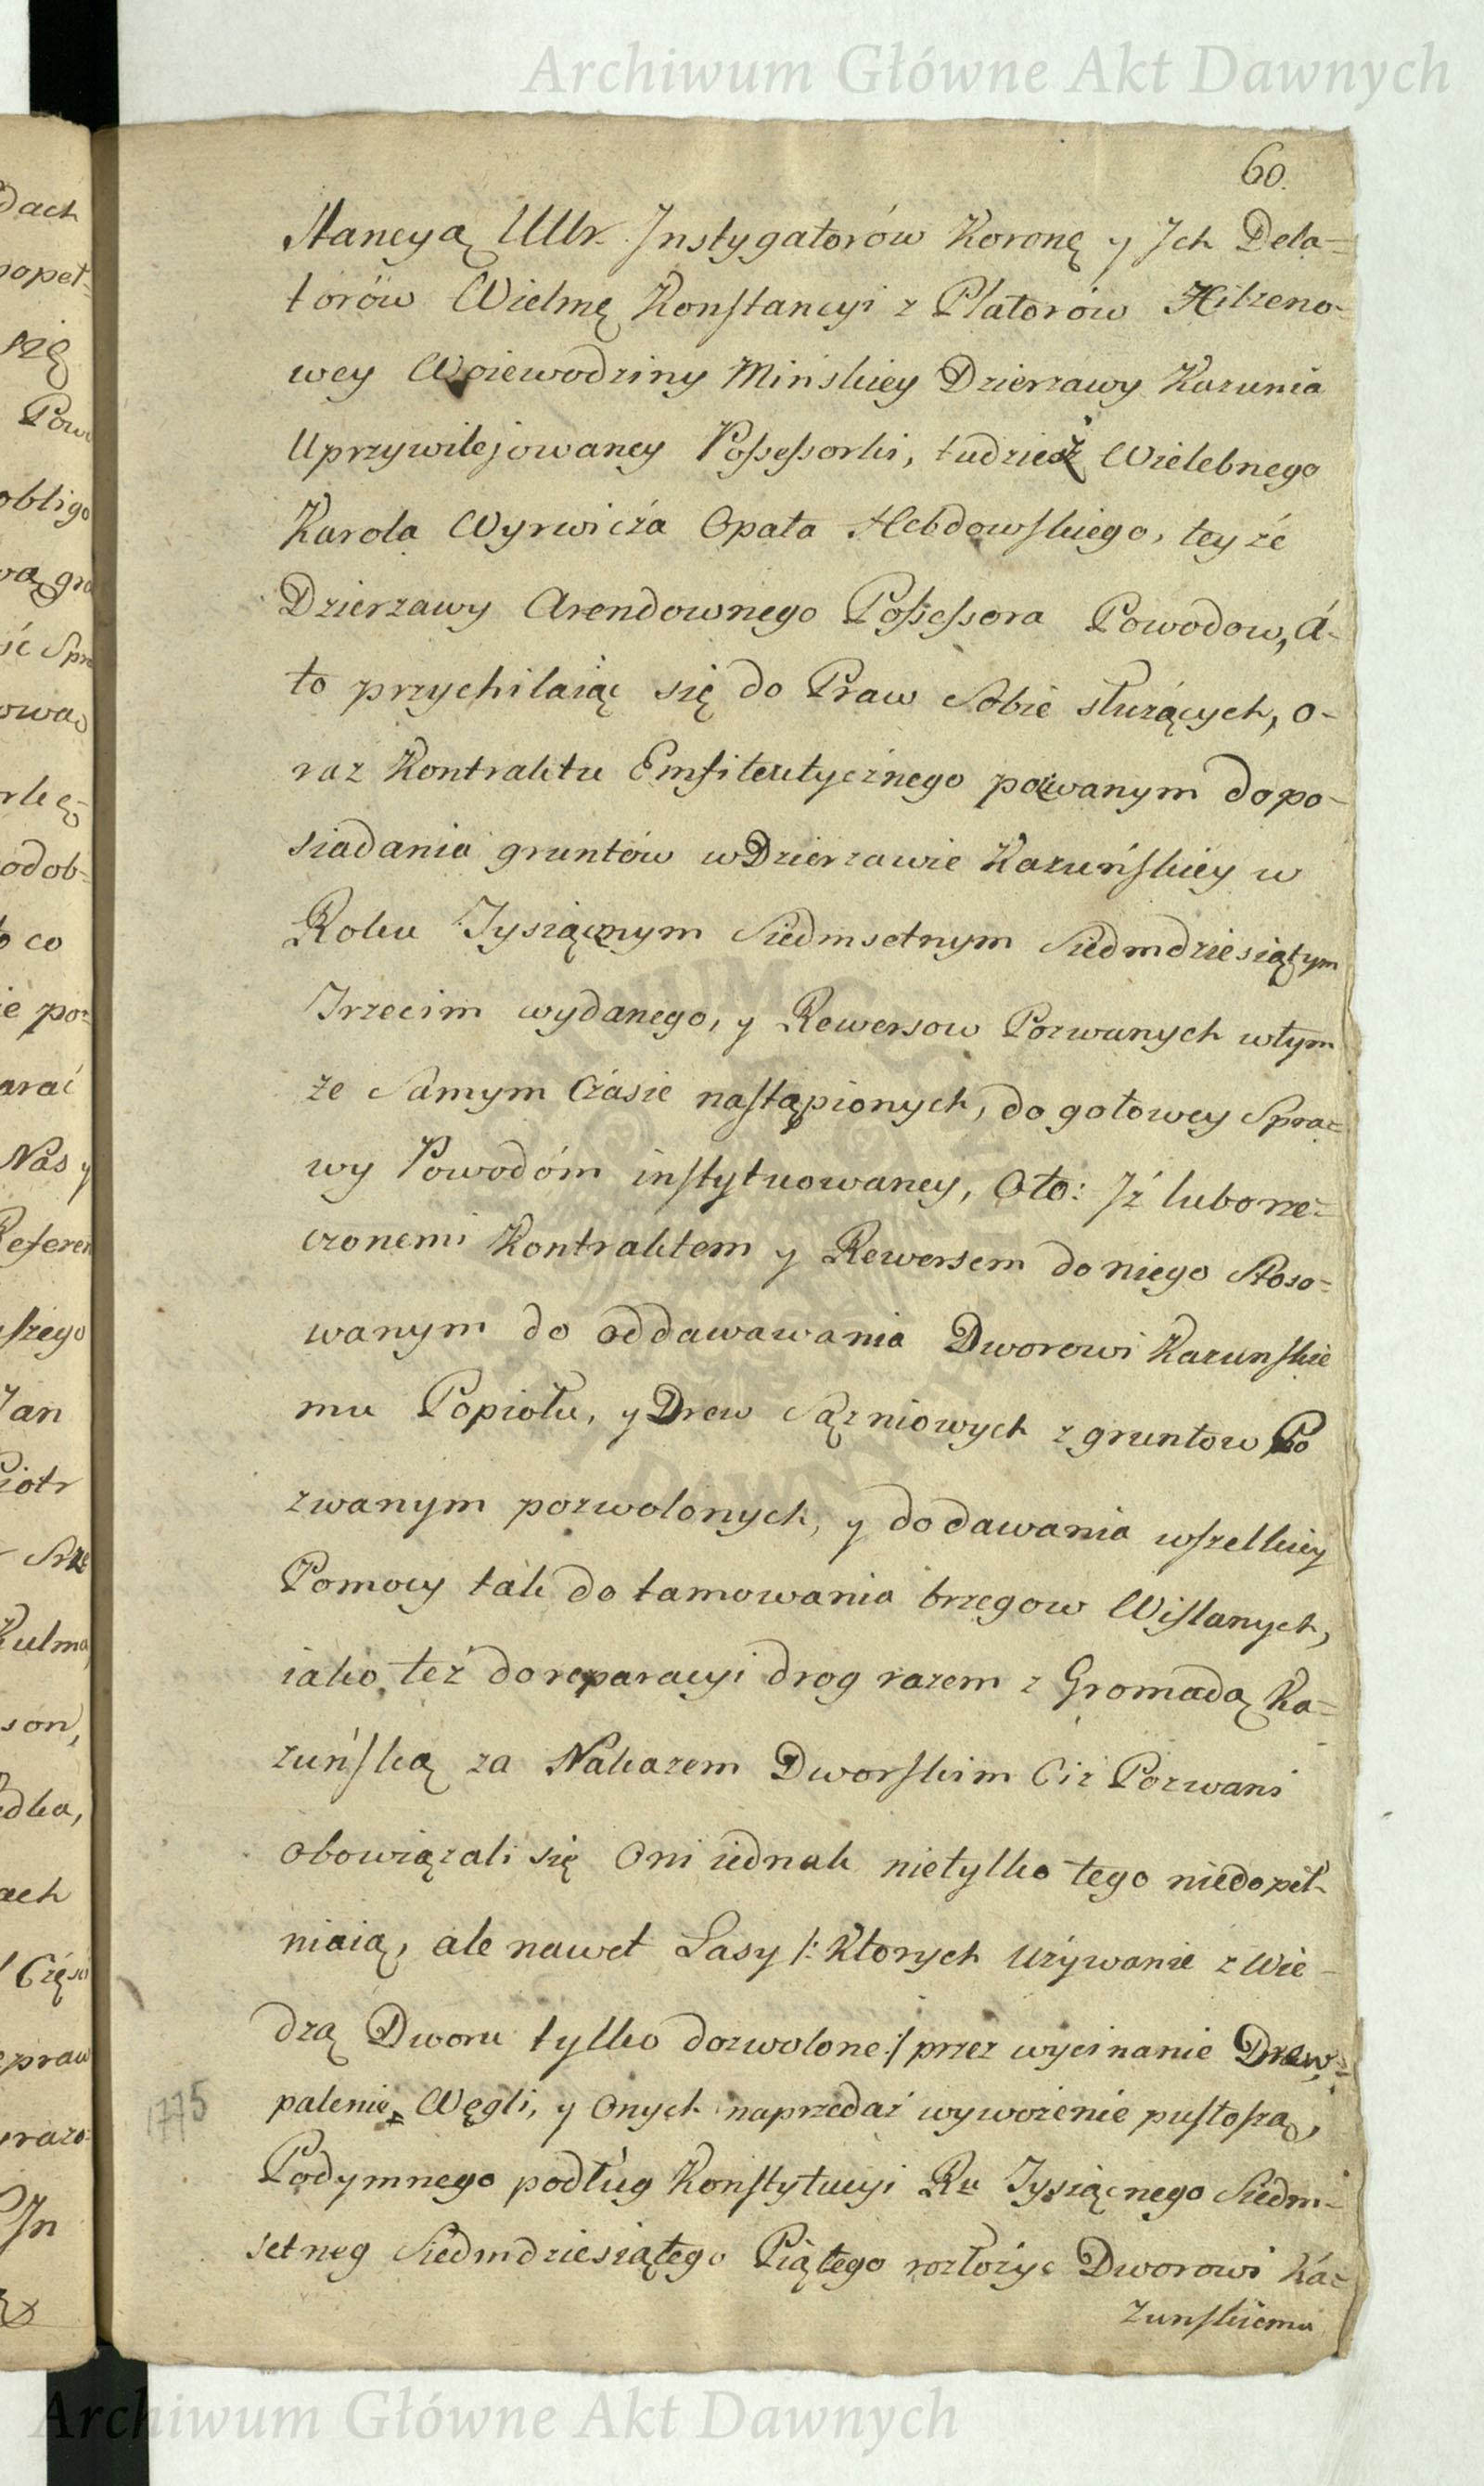 Archiwum Główne Akt Dawnych
60.
Stancyą UUr. Instygatorów Koronę y Ich Dela=
torów Wielmę Konstancyi z Platorów Hilzeno=
wey Woiewodziny Mińskiey Dzierzawy Kazunia
Uprzywilejowaney Possessorki, tudzież Wielebnego
Karola Wyrwicża Opata Hebdowskiego, tey że
Dzierzawy Arendownego Possessora Powodow, á-
to przychilaiąc się do Praw Sobie służących, o-
raz Kontraktu Emfiteutycznego pozwanym do po-
siadania gruntów w Dzierzawie Kazuńskiey w
Roku Tysiącnym Siedmsetnym Siedmdziesiątym
Trzecim wydanego, y Rewersow Pozwanych w tym
że Samym Czásie nastąpionych, do gotowey Spra=
wy Powodóm instytuowaney, Oto: Iż lubo rze=
czonemi Kontraktem y Rewersem do niego Stoso=
wanym do oddawawania Dworowi Kazunskie
mu Popiołu, y Drew Sązniowych z gruntow Po
zwanym pozwolonych, y do dawania wszelkiey
Pomocy tak do tamowania brzegow Wislanych,
iako też do reparacyi drog razem z Gromadą Ka=
zuńską za Nakazem Dworskim Ciż Pozwani
obowiązali się Oni iednak nietylko tego niedopeł-
niaią, ale nawet Lasy /: Ktorych Używanie z Wie-
dzą Dworu tylko dozwolone :/ przez wycinanie Drew=
palenie Węgli, y Onych naprzedaż wywożenie pustoszą,
1775
Podymnego podług Konstytucyi Ru Tysiącnego Siedm=
setneg Siedmdziesiątego Piątego rozłożyc Dworowi Ká=
zunskiemu
dach
popeł=
się
Pow
obligo
wą gra
ść Spra
owa
odob=
o co
ie po=
arać
Nas y
Referen
szego
Jan
Piotr
Kulma
son,
dka,
ach
Częsci
praw
Archiwum Główne Akt Dawnych